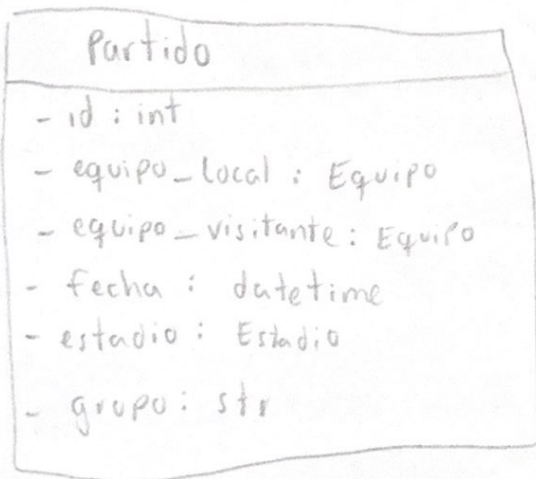 Partido
- id : int
- equipo_local : Equipo
- equipo_visitante : Equipo
- fecha : datetime
- estadio : Estadio
- grupo : str